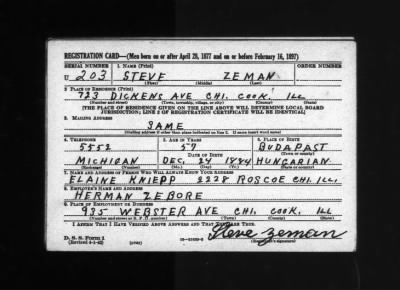 REGISTRATION CARD—(Men born on or after April 28, 1877 and on or before February 16, 1897)
SERIAL NUMBER 1. NAME (Print) ORDER NUMBER
U 203 STEVE ZEMAN
(First) (Middle) (Last)
2. PLACE OF RESIDENCE (Print)
723 DICKENS AVE CHI. COOK. ILL
(Number and street) (Town, township, village, or city) (County) (State)
[THE PLACE OF RESIDENCE GIVEN ON THE LINE ABOVE WILL DETERMINE LOCAL BOARD
JURISDICTION; LINE 2 OF REGISTRATION CERTIFICATE WILL BE IDENTICAL]
3. MAILING ADDRESS
SAME
(Mailing address if other than place indicated on line 2. If same insert word same)
4. TELEPHONE 5. AGE IN YEARS 6. PLACE OF BIRTH
5552 57 BUDAPAST
DATE OF BIRTH (Town or county)
MICHIGAN DEC. 24 1884 HUNGARIAN
7. NAME AND ADDRESS OF PERSON WHO WILL ALWAYS KNOW YOUR ADDRESS
ELAINE KNIEPP 2228 ROSCOE CHI. ILL.
8. EMPLOYER'S NAME AND ADDRESS
HERMAN ZEBORE
9. PLACE OF EMPLOYMENT OR BUSINESS
935 WEBSTER AVE CHI. COOK. ILL
(Number and street or R. F. D. number) (Town) (County) (State)
I AFFIRM THAT I HAVE VERIFIED ABOVE ANSWERS AND THAT THEY ARE TRUE.
D. S. S. Form 1
(Revised 4-1-42) (over) Steve Zeman
(Registrant's signature)